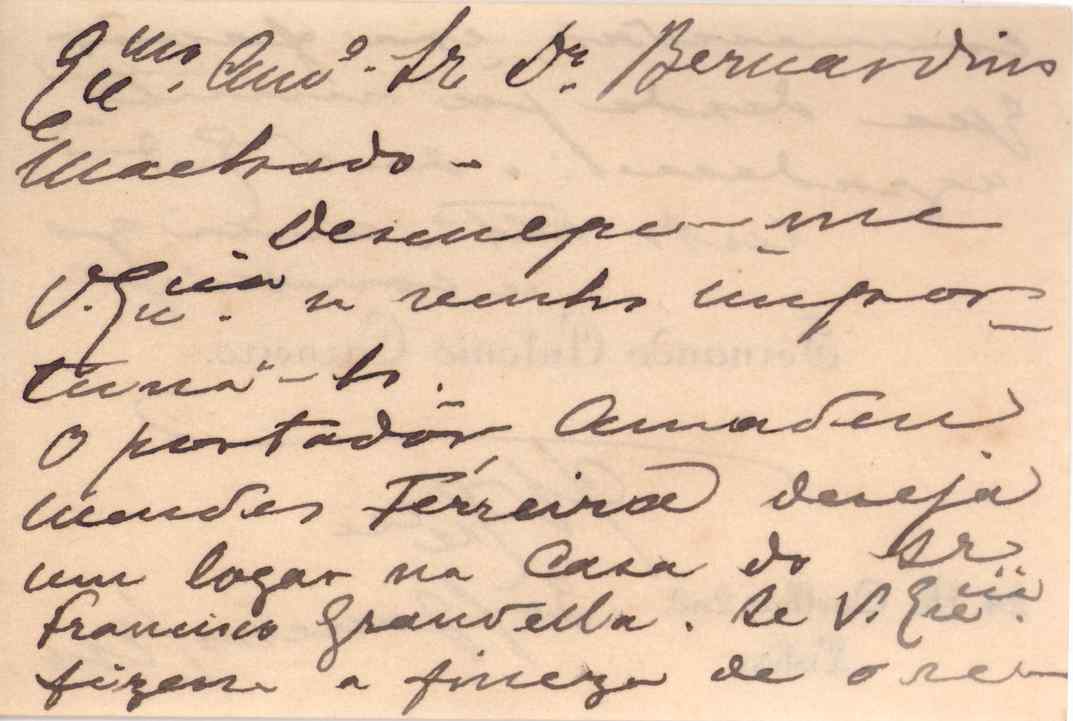 Exmo. Amo. Sr. Dr. Bernardino
Machado -
Desculpe-me
V. Excia. se venho impor-
tuná-lo.
O portador, Amadeu
Mendes Ferreira deseja
um logar na casa do Sr
Francisco Grandella. Se V. Excia.
fizesse a fineza de o re-
Fernando Antonio Carneiro.